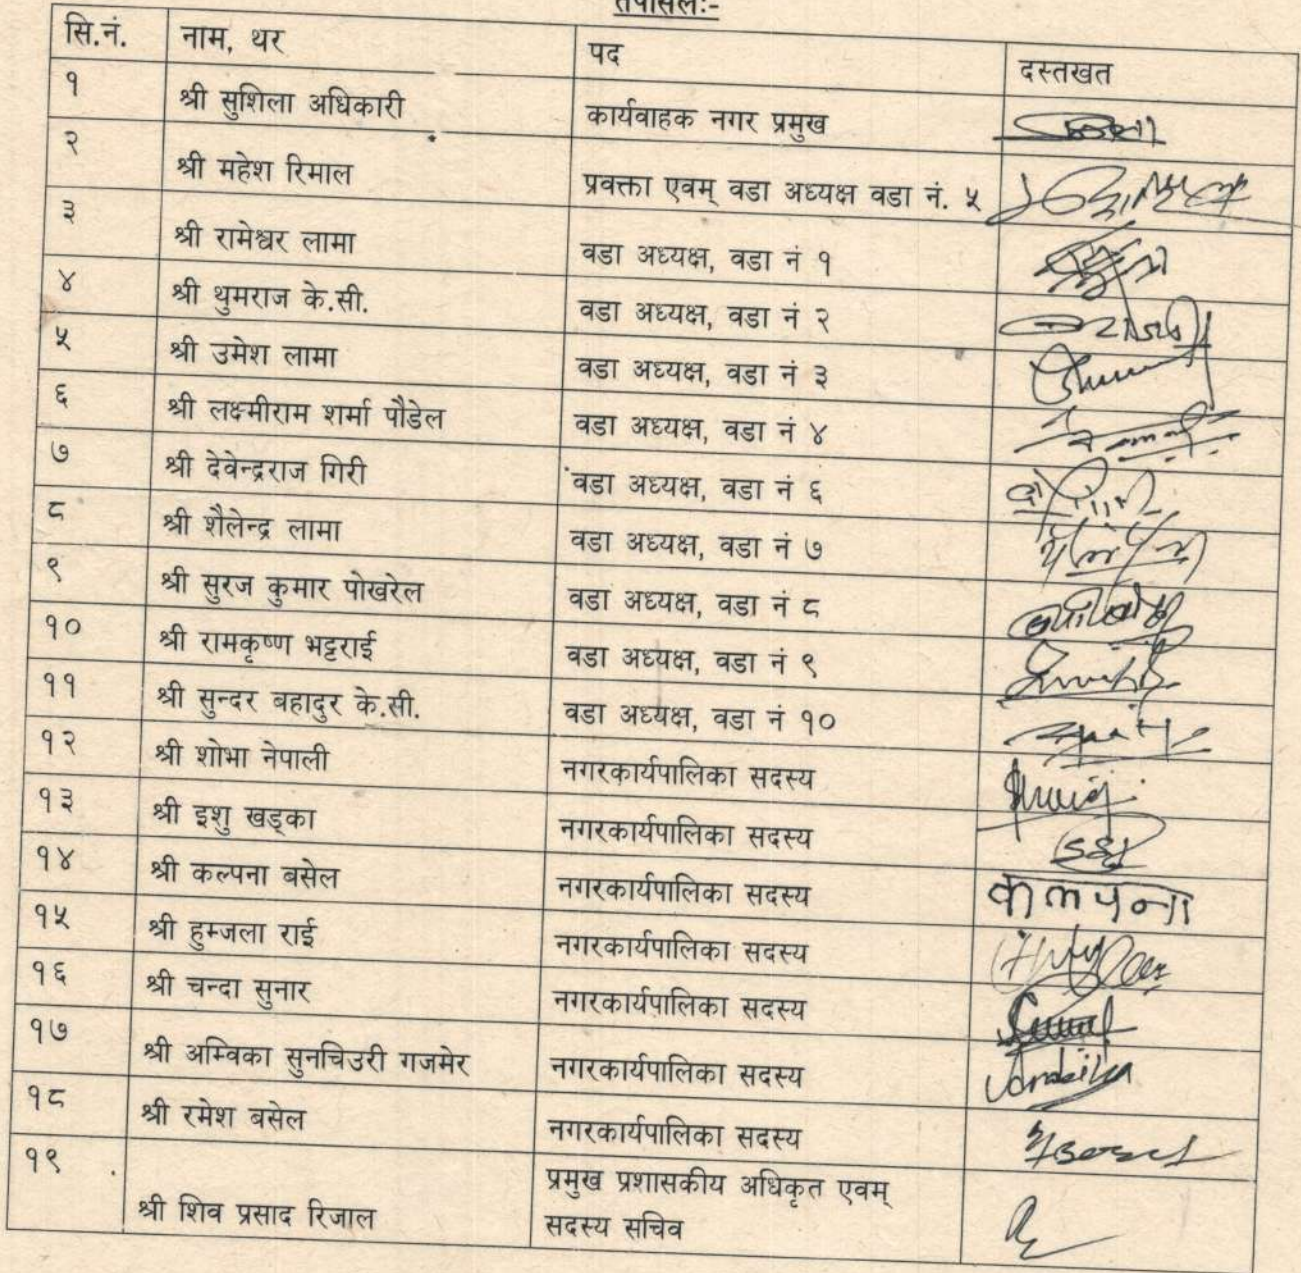 तपसिलः-
सि.नं. नाम, थर पद दस्तखत
१ श्री सुशिला अधिकारी कार्यवाहक नगर प्रमुख
२ श्री महेश रिमाल प्रवक्ता एवम् वडा अध्यक्ष वडा नं. ५
३ श्री रामेश्वर लामा वडा अध्यक्ष, वडा नं १
४ श्री थुमराज के.सी. वडा अध्यक्ष, वडा नं २
५ श्री उमेश लामा वडा अध्यक्ष, वडा नं ३
६ श्री लक्ष्मीराम शर्मा पौडेल वडा अध्यक्ष, वडा नं ४
७ श्री देवेन्द्रराज गिरी वडा अध्यक्ष, वडा नं ६
८ श्री शैलेन्द्र लामा वडा अध्यक्ष, वडा नं ७
९ श्री सुरज कुमार पोखरेल वडा अध्यक्ष, वडा नं ८
१० श्री रामकृष्ण भट्टराई वडा अध्यक्ष, वडा नं ९
११ श्री सुन्दर बहादुर के.सी. वडा अध्यक्ष, वडा नं १०
१२ श्री शोभा नेपाली नगरकार्यपालिका सदस्य
१३ श्री इशु खड्का नगरकार्यपालिका सदस्य
१४ श्री कल्पना बसेल नगरकार्यपालिका सदस्य कल्पना
१५ श्री हुम्जला राई नगरकार्यपालिका सदस्य
१६ श्री चन्दा सुनार नगरकार्यपालिका सदस्य
१७ श्री अम्विका सुनचिउरी गजमेर नगरकार्यपालिका सदस्य
१८ श्री रमेश बसेल नगरकार्यपालिका सदस्य
१९ श्री शिव प्रसाद रिजाल प्रमुख प्रशासकीय अधिकृत एवम्
सदस्य सचिव